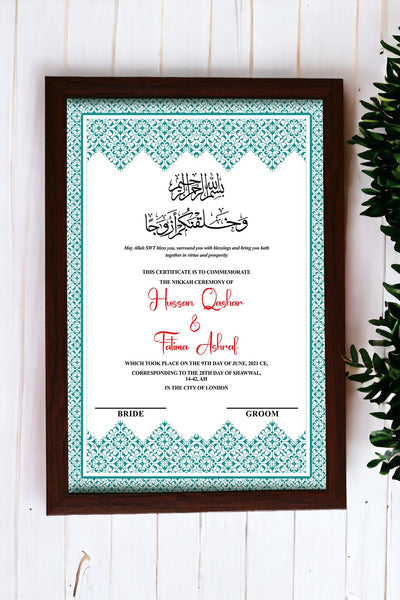 بسم الله الرحمن الرحيم
وخلقنكم أزوجا
May Allah SWT bless you, surround you with blessings and bring you both
together in virtue and prosperity
THIS CERTIFICATE IS TO COMMEMORATE
THE NIKKAH CEREMONY OF
Hussan Qashar
&
Fatima Ashraf
WHICH TOOK PLACE ON THE 9TH DAY OF JUNE, 2021 CE,
CORRESPONDING TO THE 28TH DAY OF SHAWWAL,
14-42, AH
IN THE CITY OF LONDON
BRIDE GROOM